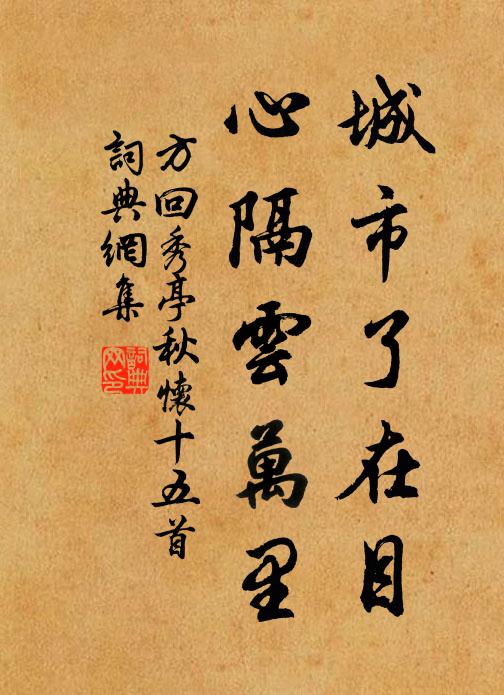 城市了在目
心隔雲萬里
方回秀亭秋懷十五首
詞典網集
詞典网印